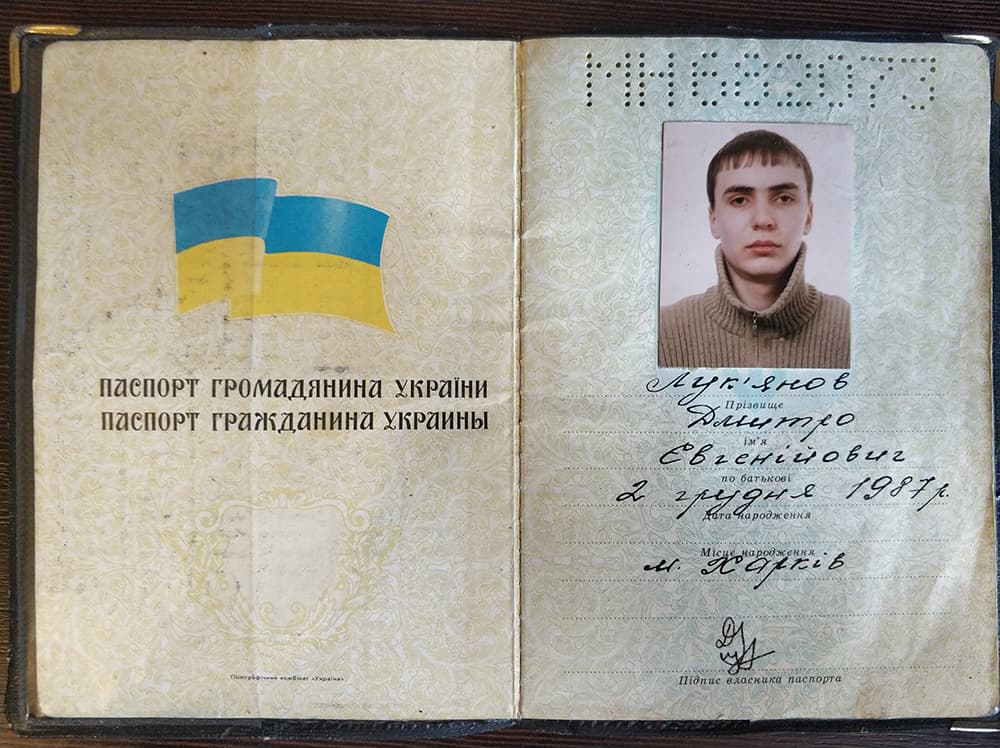 ПАСПОРТ ГРОМАДЯНИНА УКРАЇНИ
ПАСПОРТ ГРАЖДАНИНА УКРАИНЫ
Поліграфічний комбінат «Україна»
МН682073
Лук'янов
Прізвище
Дмитро
ім'я
Євгенійович
по батькові
2 грудня 1987 р.
Дата народження
Місце народження
м. Харків
Підпис власника паспорта